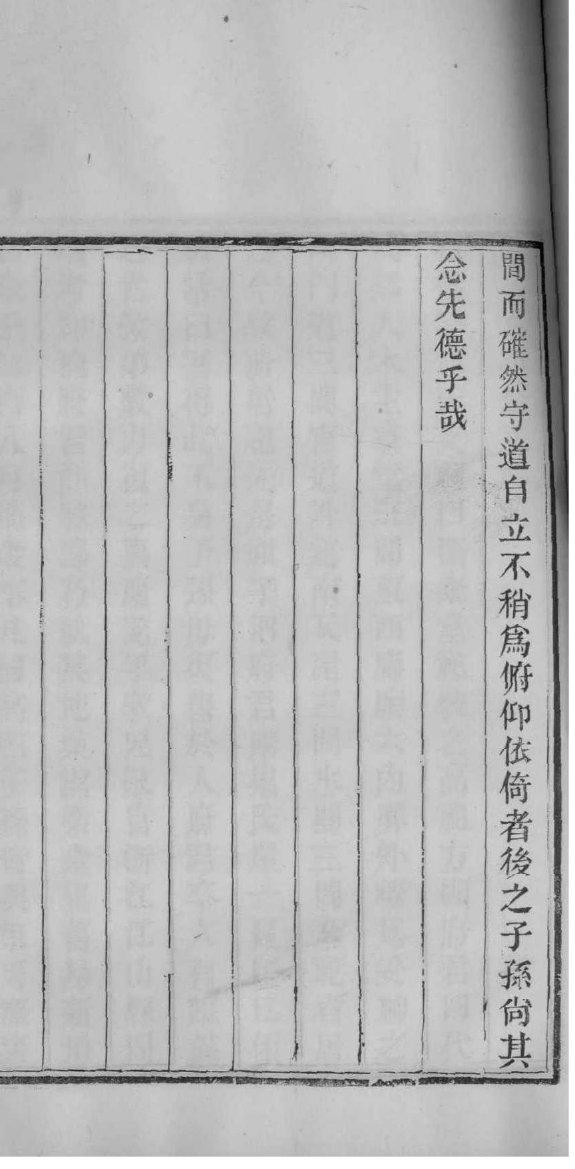 間而確然守道自立不稍爲俯仰依倚者後之子孫尙其
念先德乎哉